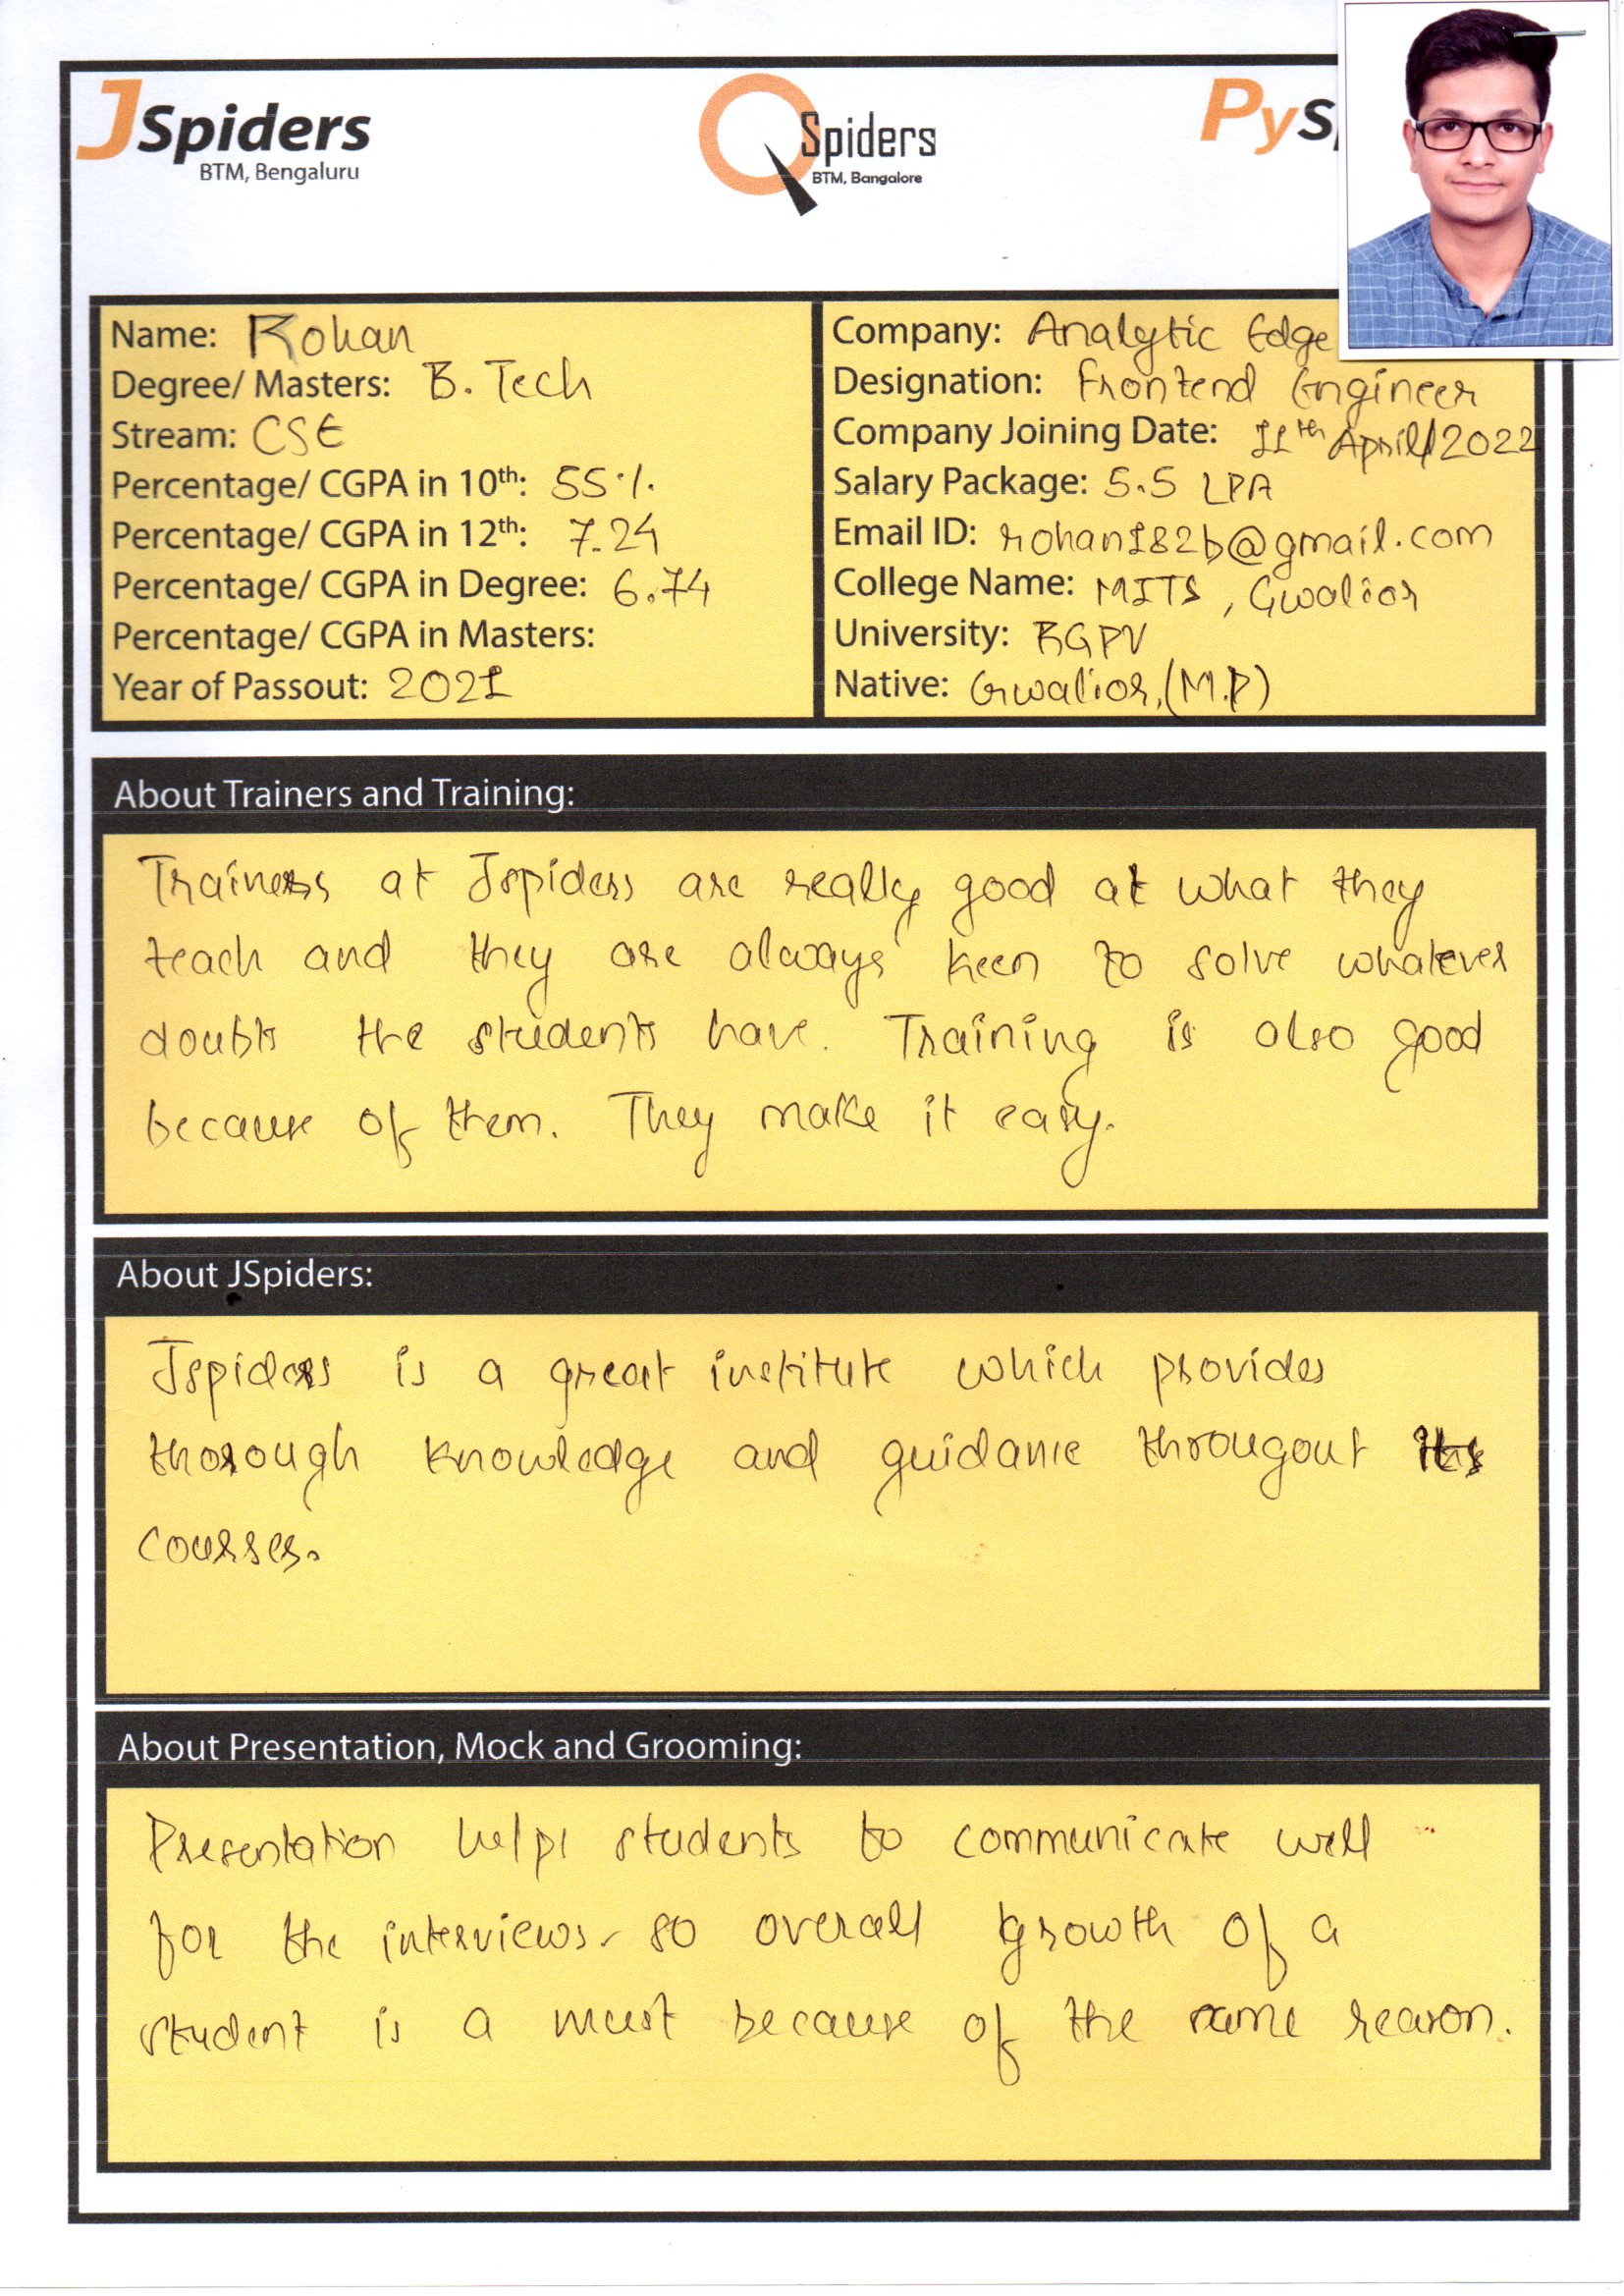 JSpiders
BTM, Bengaluru
QSpiders
BTM, Bangalore
PyS
Name: Rohan
Degree/ Masters: B. Tech
Stream: CSE
Percentage/ CGPA in 10th: 55%
Percentage/ CGPA in 12th: 7.24
Percentage/ CGPA in Degree: 6.74
Percentage/ CGPA in Masters:
Year of Passout: 2021
Company: Analytic Edge
Designation: Frontend Engineer
Company Joining Date: 11th April/2022
Salary Package: 5.5 LPA
Email ID: rohan182b@gmail.com
College Name: MITS, Gwalior
University: RGPV
Native: Gwalior, (M.P)
About Trainers and Training:
Trainers at Jspiders are really good at what they
teach and they are always keen to solve whatever
doubts the students have. Training is also good
because of them. They make it easy.
About JSpiders:
Jspiders is a great institute which provides
thorough knowledge and guidance througout its
courses.
About Presentation, Mock and Grooming:
Presentation helps students to communicate well
for the interviews. so overall growth of a
student is a must because of the same reason.